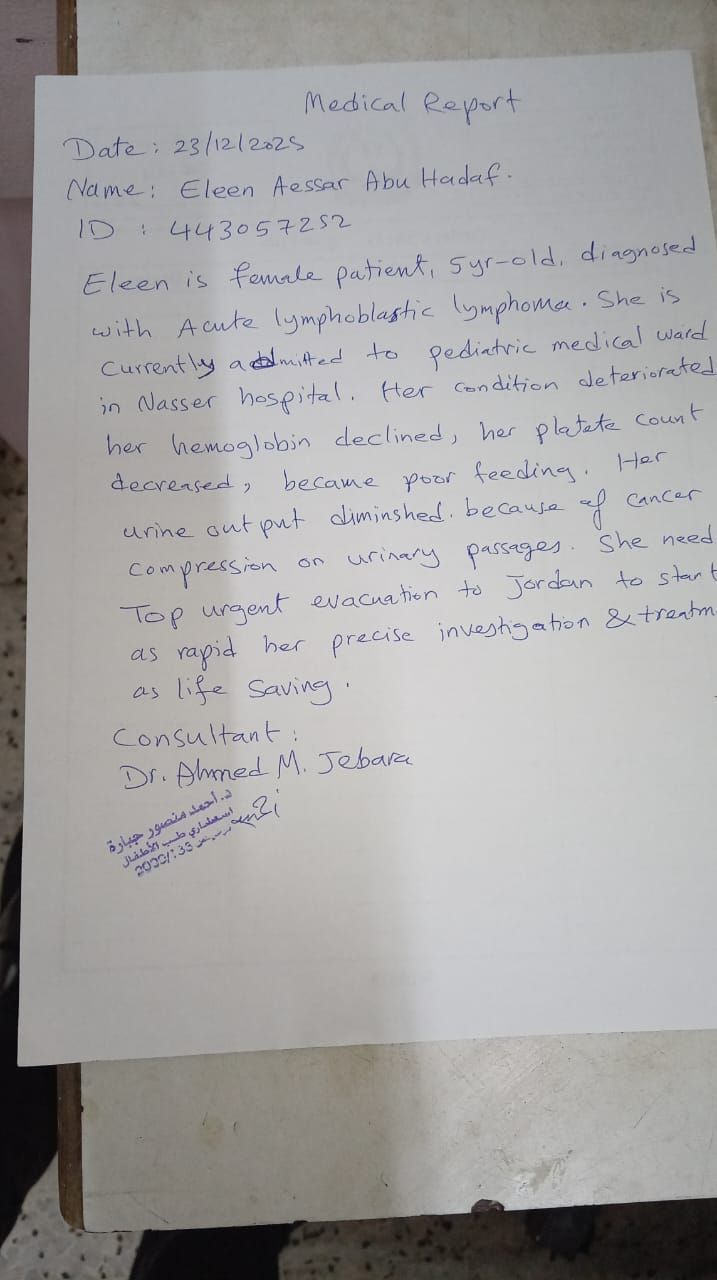 Medical Report
Date: 23/12/2025
Name: Eleen Aessar Abu Hadaf.
ID : 443057252
Eleen is female patient, 5yr-old, diagnosed
with Acute lymphoblastic lymphoma. She is
Currently admitted to pediatric medical ward
in Nasser hospital. Her condition deteriorated
her hemoglobin declined, her platete count
decreased, became poor feeding. Her
urine out put diminshed. because of cancer
compression on urinary passages. She need
Top urgent evacuation to Jordan to start
as rapid her precise investigation & treatm
as life saving.
Consultant:
Dr. Ahmed M. Jebara
د. أحمد منصور جبارة
استشاري طب الأطفال